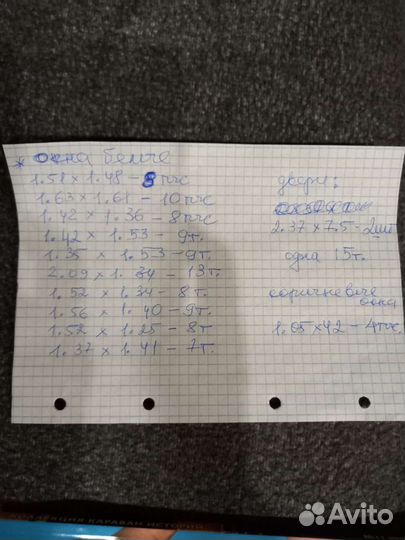 * окна белые
1.51 x 1.48 - 8тыс
1.63 x 1.61 - 10тыс
1.42 x 1.36 - 8тыс
1.42 x 1.53 - 9т.
1.35 x 1.53 - 9т.
2.09 x 1.34 - 13т.
1.52 x 1.34 - 8т.
1.56 x 1.40 - 9т.
1.52 x 1.25 - 8т
1.37 x 1.41 - 7т.
двери:
2.37 x 7.5 - 2шт
одна 15т.
коричневые
окна
1.05 x 42 - 4тыс.
КОЛЛЕКЦИЯ КАРАВАН ИСТОРИЙ
Avito